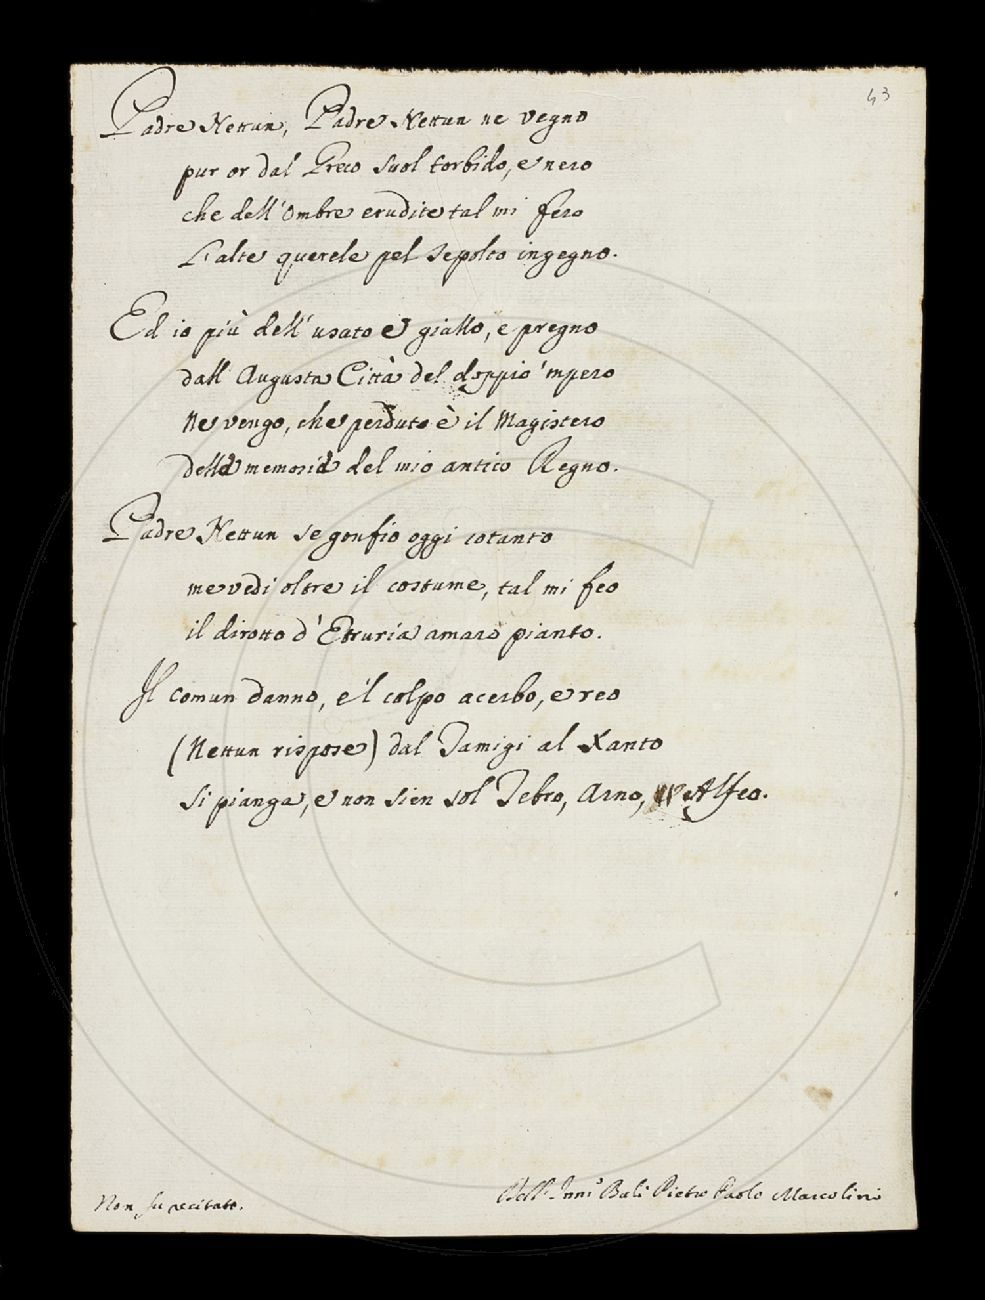 43
Padre Nettun, Padre Nettun ne vegno
pur or dal Greco suol torbido, e nero
che dell'Ombre erudite tal mi fero
L'alte querele pel sepolto ingegno.
Ed io più dell'usato e giallo, e pregno
dall Augusta Città del doppio 'mpero
Ne vengo, che perduto è il Magistero
della memoria del mio antico Regno.
Padre Nettun se gonfio oggi cotanto
me vedi oltre il costume, tal mi feo
il dirotto d'Etruria amaro pianto.
Il comun danno, e 'l colpo acerbo, e reo
(Nettun rispose) dal Tamigi al Xanto
si pianga, e non sien sol Tebro, Arno, Alfeo.
Non fu recitato.
Dell' Balì Pietro Paolo Marcolini